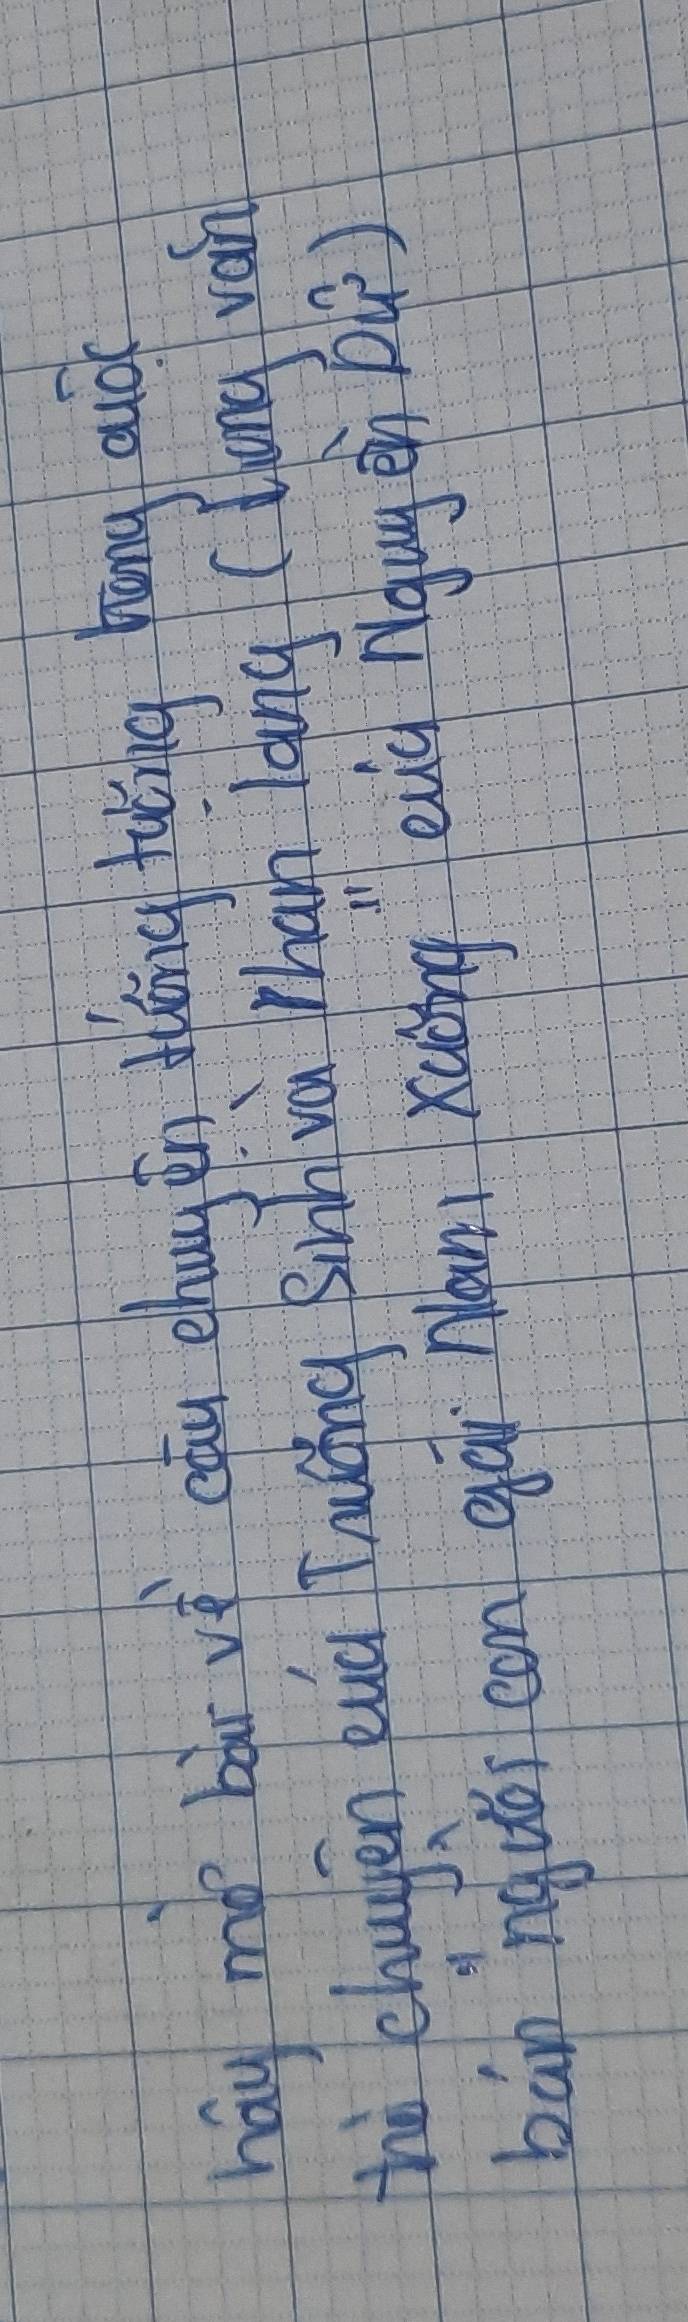 hãy mở bài về câu chuyện tưởng tượng trong cuộc
trò chuyện của Trương Sinh và Phan lang ( trong văn
bản " người con gái Nam Xương " của Nguyễn Dữ )